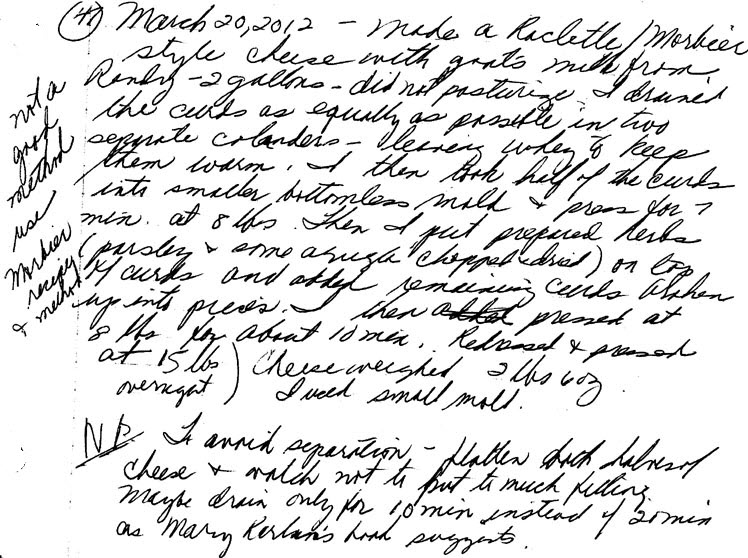 (4) March 20, 2012 - made a Raclette/Morbier
style cheese with goats milk from
Randy - 2 gallons - did not pasturize. I drained
the curds as equally as possible in two
separate colanders - leaving whey to keep
them warm. I then took half of the curds
into smaller bottomless mold & press for 7
min. at 8 lbs. Then I put prepared herbs
(parsley & some arugula chopped dried) on top
of curds and added remaining curds broken
up into pieces. I then pressed at
8 lbs for about 10 min. Redressed & pressed
at 15 lbs ) Cheese weighed 2 lbs 6 oz
overnight ) I used small mold.
NB To avoid separation - flatten both halves of
cheese & watch not to put to much filling
Maybe drain only for 10 min instead of 20 min
as Mary Karlin's book suggests.
not a
good
method
use
Morbier
recipe
& method